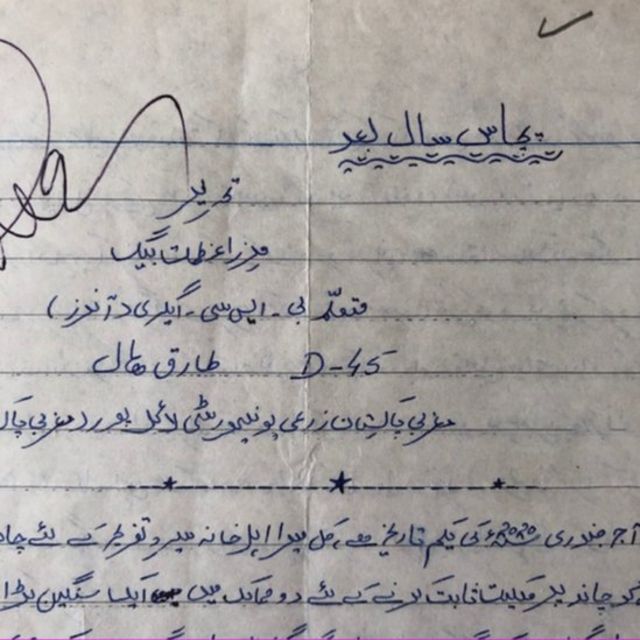 پچاس سال بعد
تحریر
مرزا عظمت بیگ
متعلّم بی۔ ایس سی۔ ایگری (آنرز)
D-45 طارق ہال
مغربی پاکستان زرعی یونیورسٹی لائل پور (مغربی پاک
آج جنوری 2020ء کی یکم تاریخ ہے، کل میرا اہل خانہ سیر و تفریح کے لئے چا
کو چاند پر ملکیت ثابت کرنے کے لئے دو ممالک میں ایک سنگین